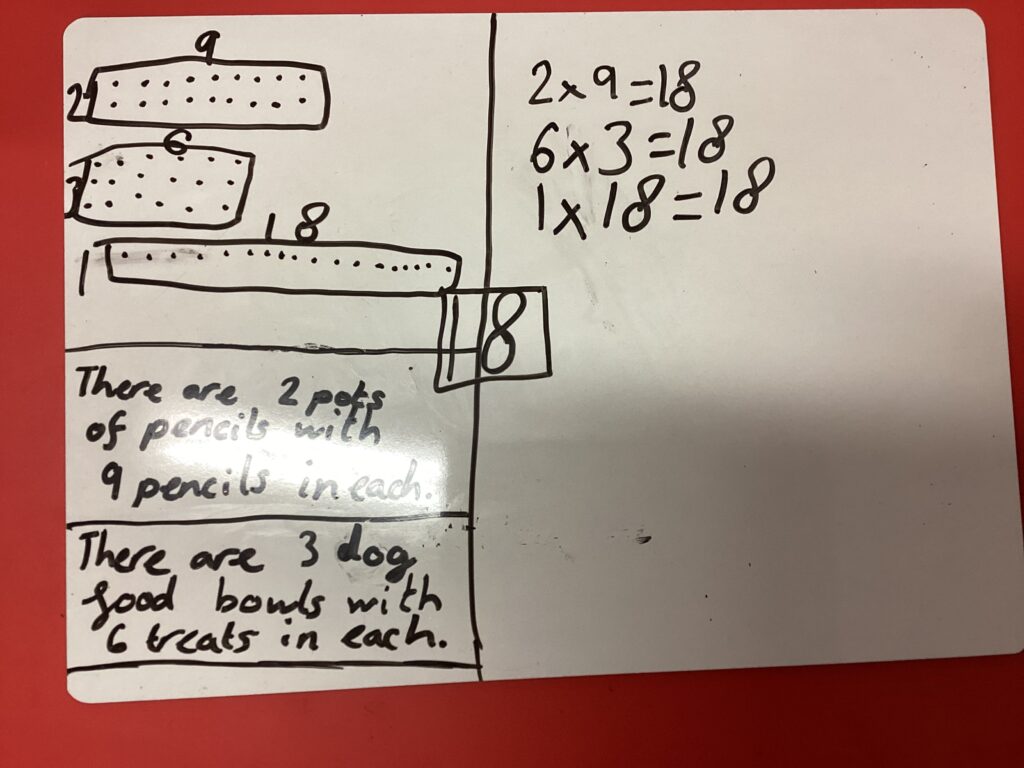 9
2
6
3
18
1
18
There are 2 pots
of pencils with
9 pencils in each.
There are 3 dog
food bowls with
6 treats in each.
2 x 9 = 18
6 x 3 = 18
1 x 18 = 18